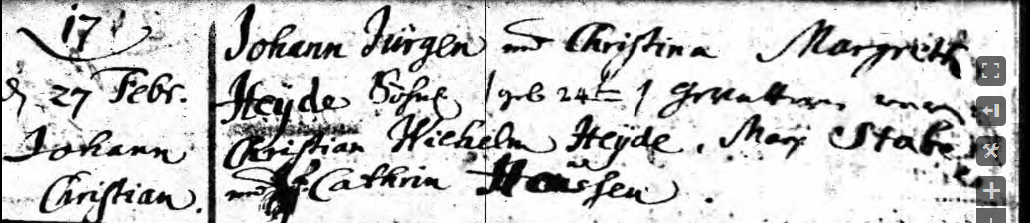 17
d 27 Febr.
Johann
Christian.
Johann Jürgen und Christina Margreth
Heÿde Sohn / geb 24t / Gevattern waren
Christian Wilhelm Heÿde, Marx Stabe
und Cathrin Haussen.